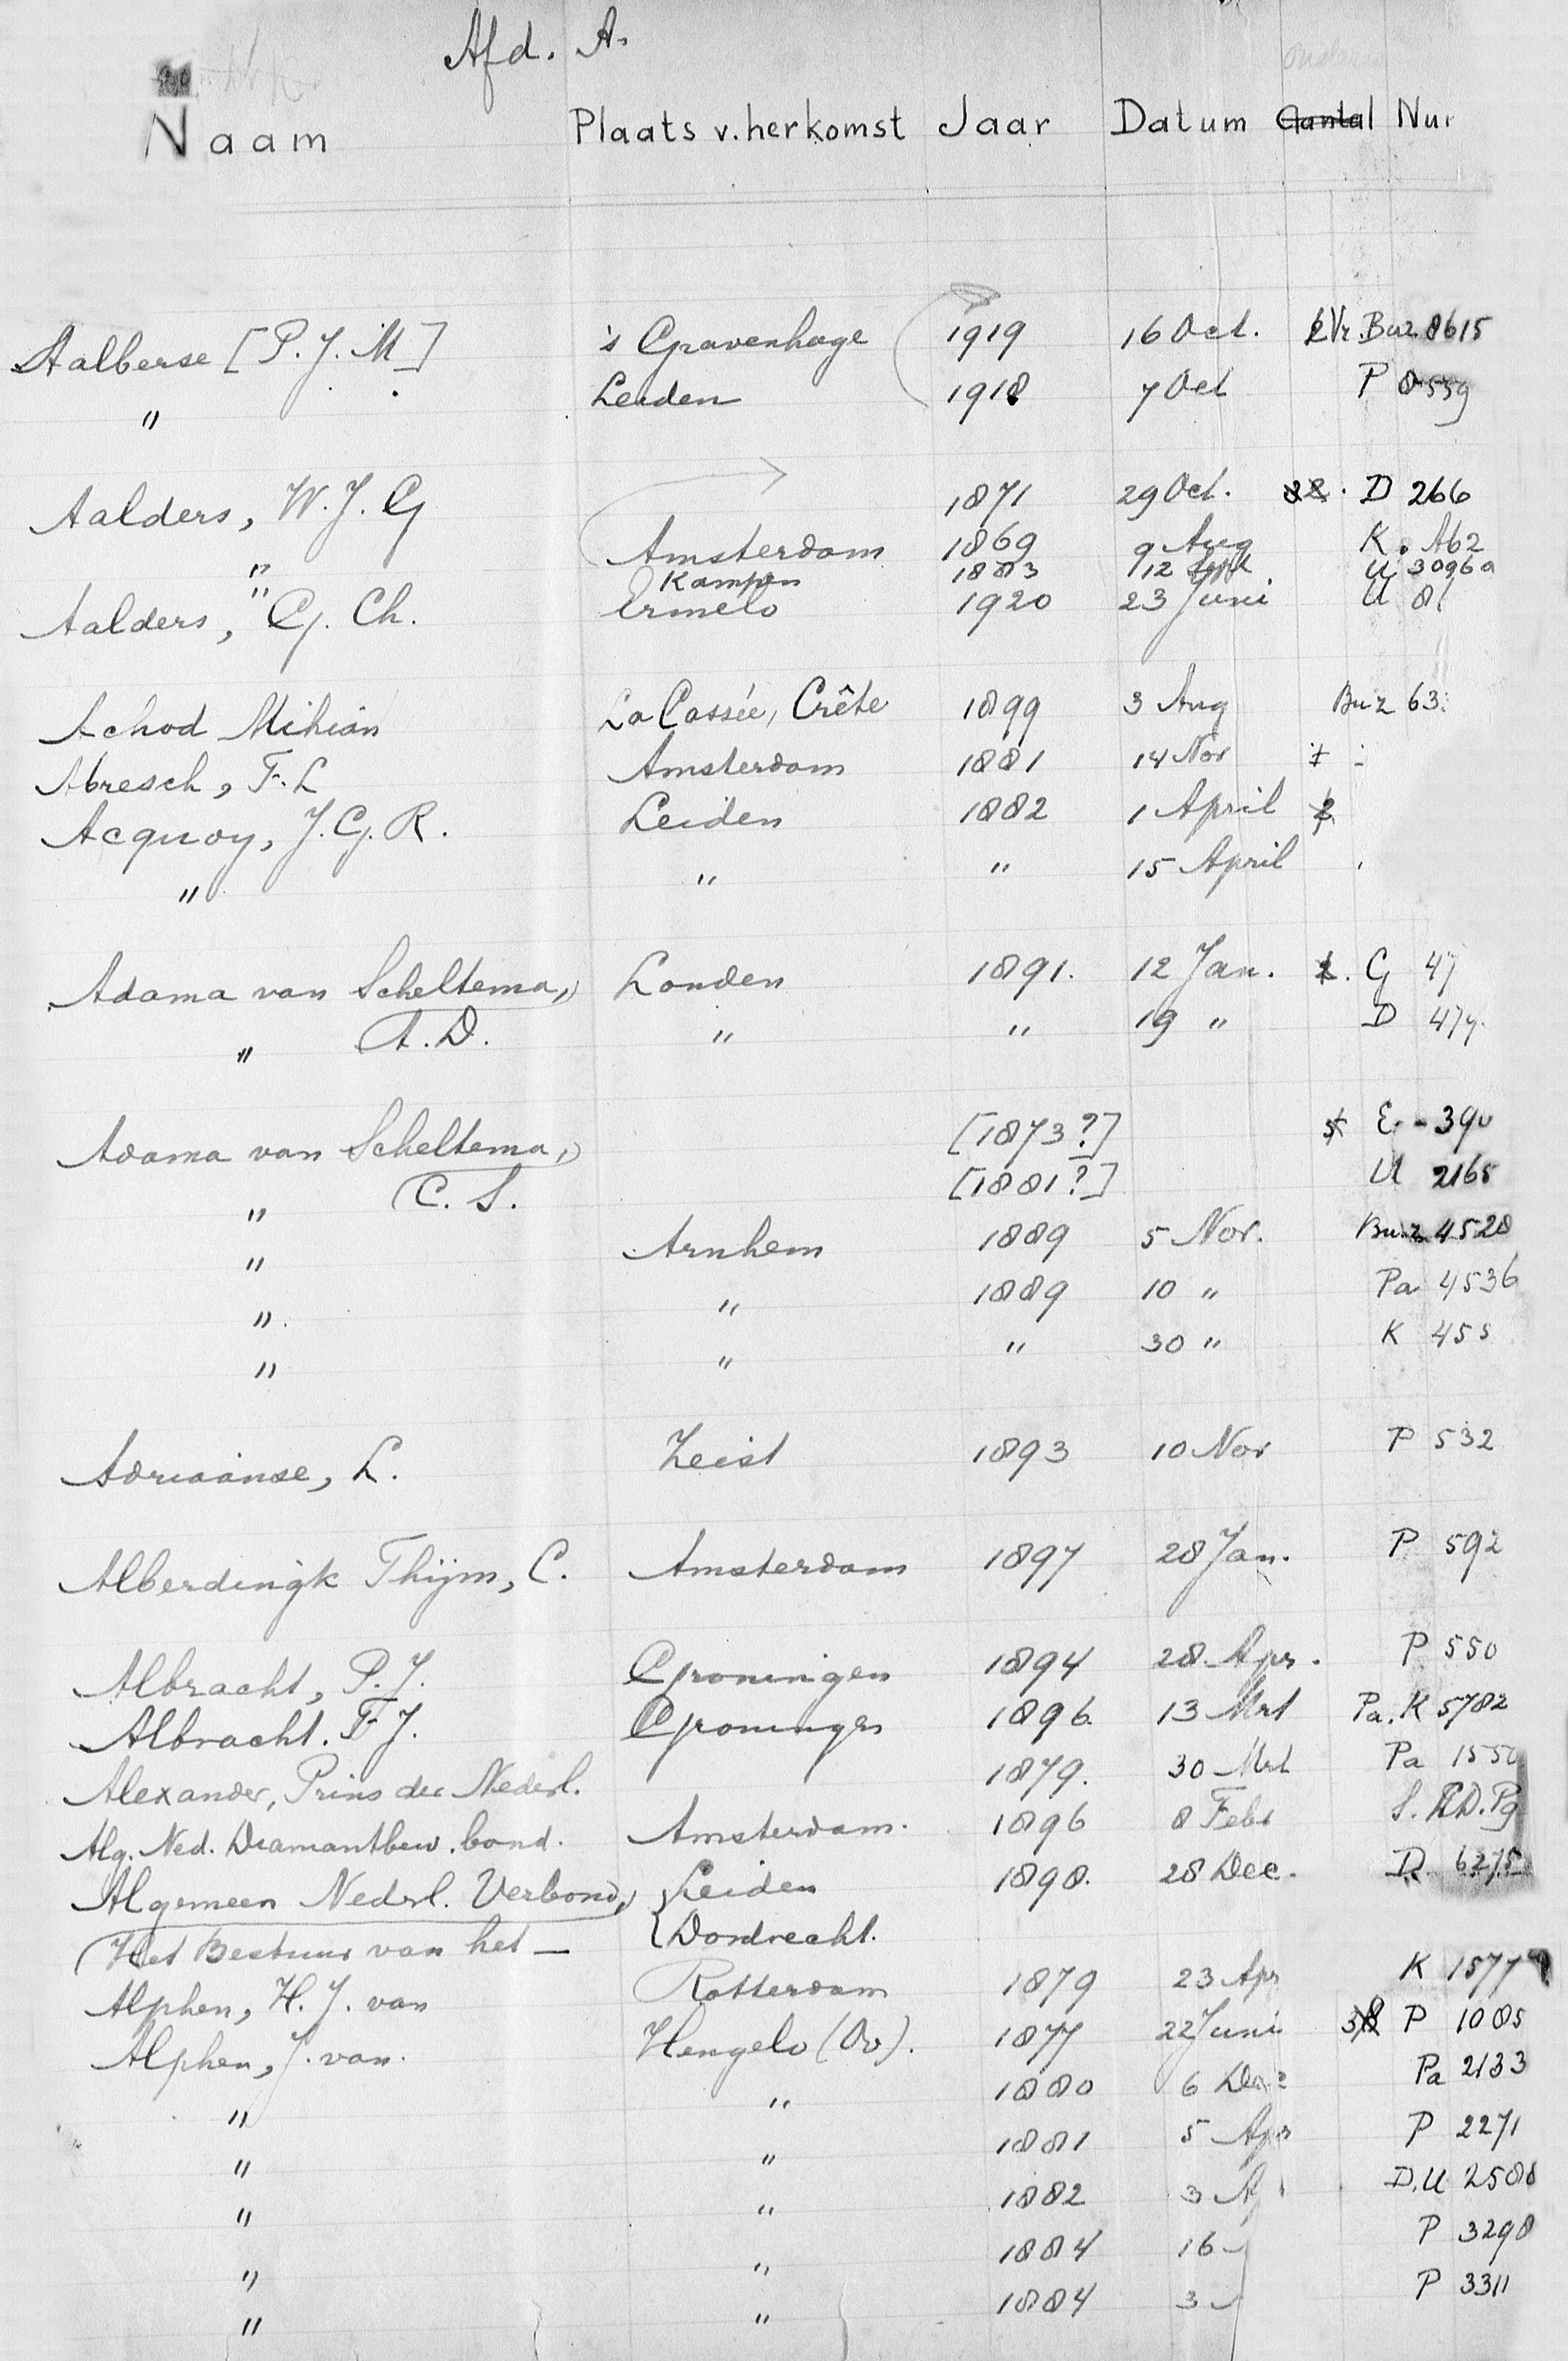 Afd. A.
Naam Plaats v. herkomst Jaar Datum Aantal Nu
Aalberse [P. J. M] 's Gravenhage 1919 16 Oct. Buz 8615
" Leiden 1918 7 Oct P 8559
Aalders, W. J. G 1871 29 Oct. D 266
" Amsterdam 1869 9 Aug K. A62
" Kampen 1883 12 U 3096a
Aalders, G. Ch. Ermelo 1920 23 Juni U 8
Achod Mihian La Cassée, Crête 1899 3 Aug Buz 63
Abresch, F. L Amsterdam 1881 14 Nov
Acquoy, J. G. R. Leiden 1882 1 April 2
" " " 15 April
Adama van Scheltema, Londen 1891. 12 Jan. G 47
" A. D. " " 19 " D 474
Adama van Scheltema, [1873?] E - 390
" C. S. [1881?] U 2165
" Arnhem 1889 5 Nov. Buz 4528
" " 1889 10 " Pa 4536
" " " 30 " K 455
Adriaanse, L. Zeist 1893 10 Nov P 532
Alberdingk Thijm, C. Amsterdam 1897 28 Jan. P 592
Albracht, P. J. Groningen 1894 28 Apr. P 550
Albracht. F J. Groningen 1896. 13 Mrt Pa. K 5782
Alexander, Prins der Nederl. 1879. 30 Mrt Pa 155
Alg. Ned. Diamantbew. bond. Amsterdam. 1896 8 Febr S.
Algemeen Nederl. Verbond, Leiden 1898. 28 Dec. D 6275
(Het Bestuur van het — Dordrecht.
Alphen, H. J. van Rotterdam 1879 23 Apr K 1577
Alphen, J. van. Hengelo (Ov). 1877 22 Juni P 1085
" " 1880 6 Dec Pa 2133
" " 1881 5 Apr P 2271
" " 1882 3 A D. U 2588
" " 1884 16 P 3298
" " 1884 3 P 3311